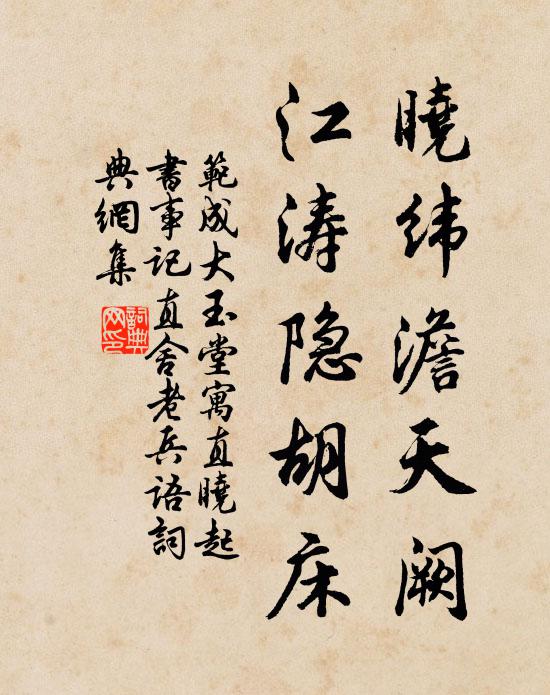 曉纬澹天阙
江涛隐胡床
範成大玉堂寓直曉起
書事記直舍老兵語詞
典網集
詞典
网印